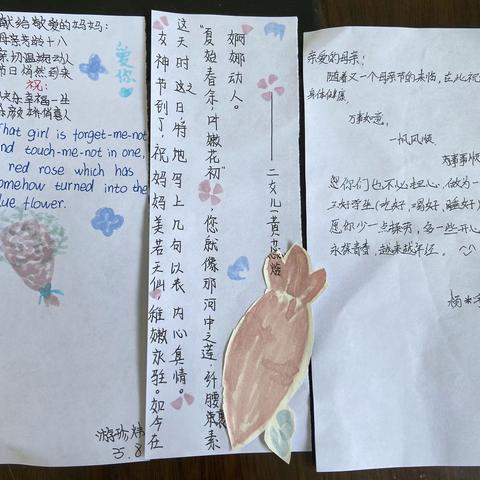 献给敬爱的妈妈:
母亲芳龄十八
亲切温婉动人
节日悄然到来
祝:
快乐幸福一生
爱你
That girl is forget-me-not
and touch-me-not in one,
red rose which has
somehow turned into the
blue flower.
5.8
女神节到了,祝妈妈美若天仙 稚嫩永驻。如今在
这天时之日,特地写上几句以表 内心真情。
"夏始春余,叶嫩花初" 您就像那河中之莲,纤腰素
婀娜动人。
——二女儿(黄
亲爱的母亲:
随着又一个母亲节的来临,在此祝
身体健康,
万事如意,
一帆风顺,
您们也不必担心,做为一
(吃好,喝好,睡好)
愿你少一点操劳,多一些开心
永葆青春,越来越年轻。
杨